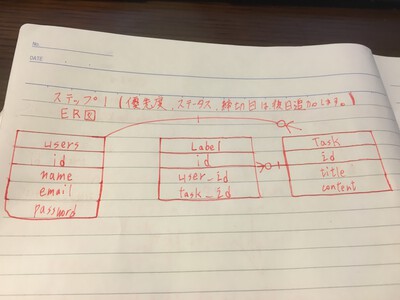 No.
DATE
ステップ1(優先度、ステータス、締切日は後日追加します。)
ER図
users
id
name
email
password
Label
id
user_id
task_id
Task
id
title
content